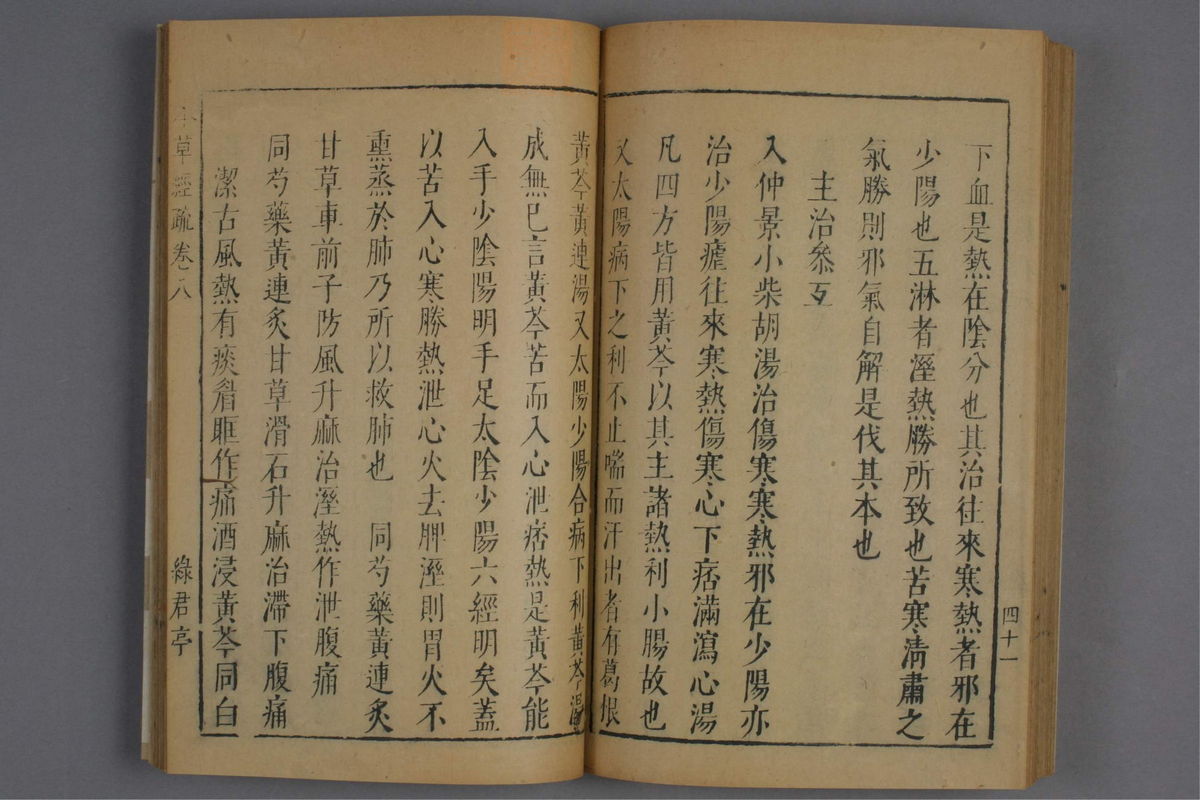 下血是熱在陰分也其治往來寒熱者邪在
少陽也五淋者溼熱勝所致也苦寒清肅之
氣勝則邪氣自解是伐其本也
主治叅互
入仲景小柴胡湯治傷寒寒熱邪在少陽亦
治少陽瘧往來寒熱傷寒心下痞滿瀉心湯
凡四方皆用黃芩以其主諸熱利小腸故也
又太陽病下之利不止喘而汗出者有葛根
黃芩黃連湯又太陽少陽合病下利黃芩湯
成無巳言黃芩苦而入心泄痞熱是黃芩能
入手少陰陽明手足太陰少陽六經明矣蓋
以苦入心寒勝熱泄心火去脾溼則胃火不
熏蒸於肺乃所以救肺也　同芍藥黃連炙
甘草車前子防風升麻治溼熱作泄腹痛
同芍藥黃連炙甘草滑石升麻治滯下腹痛
潔古風熱有痰眉眶作痛酒浸黃芩同白
四十一
本草經疏 卷之八
綠君亭